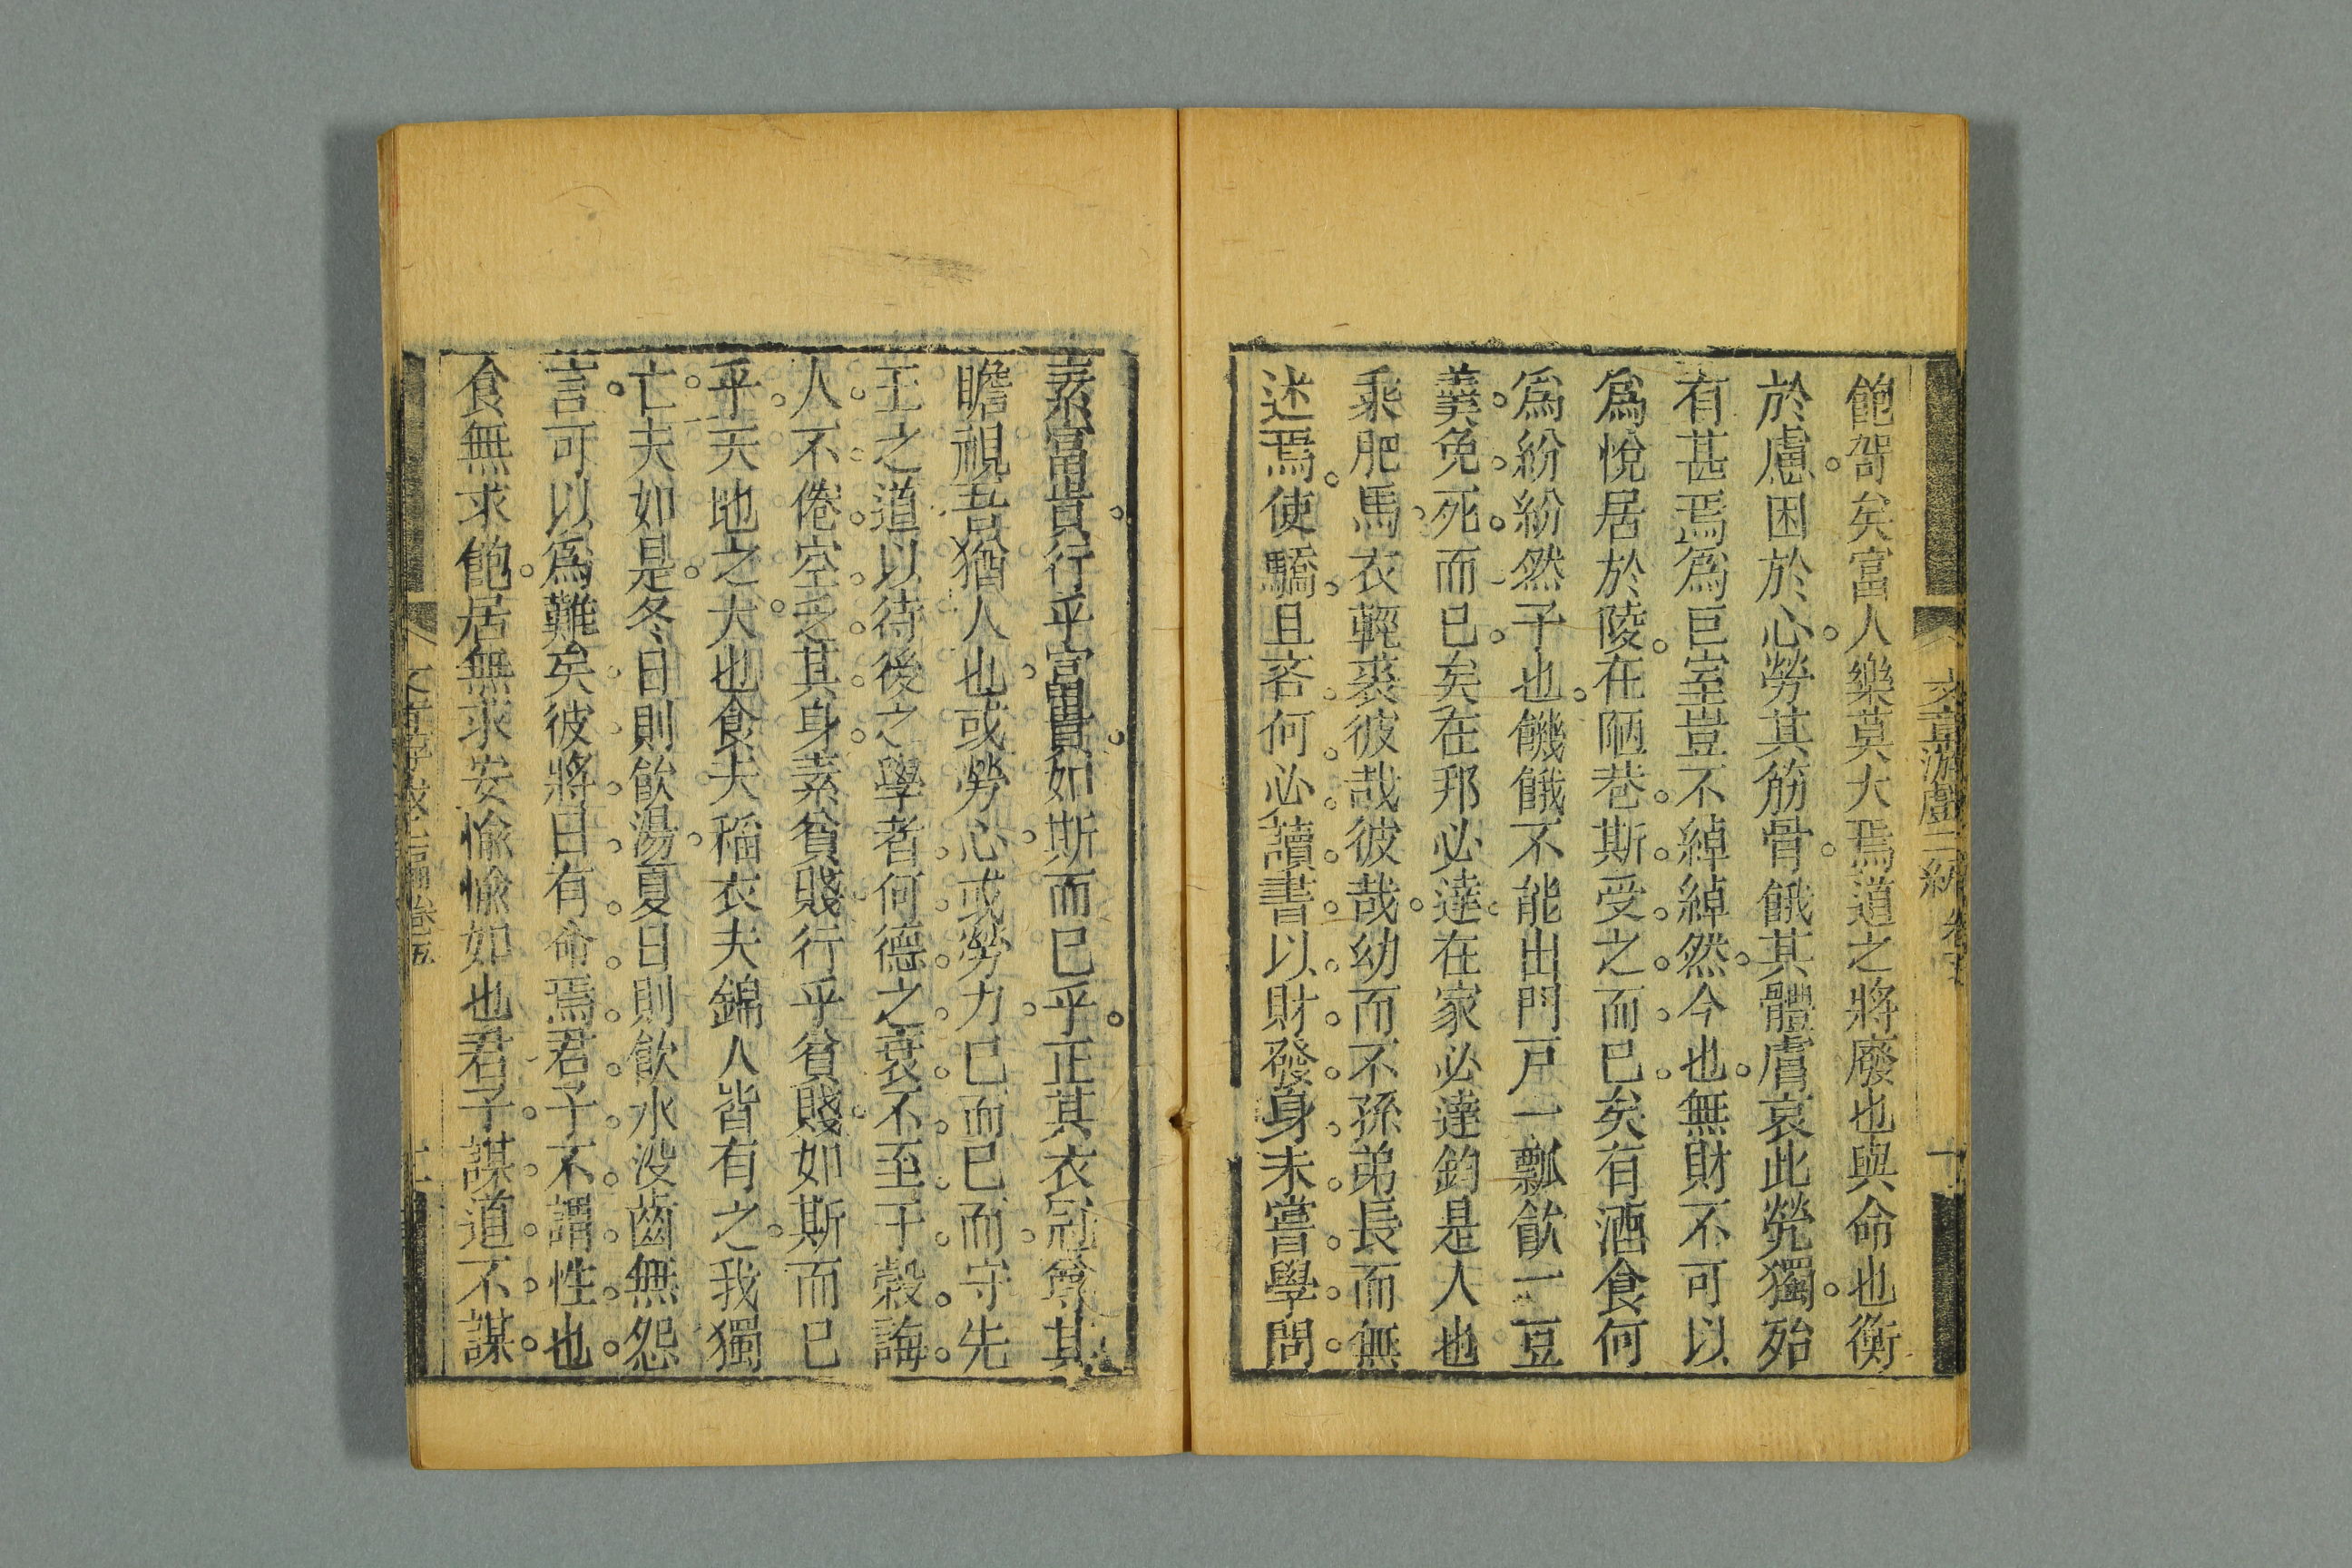 文章游戲二編 卷五 十
飽哿矣富人樂莫大焉道之將廢也與命也衡
於慮困於心勞其筋骨餓其體膚哀此煢獨殆
有甚焉爲巨室豈不綽綽然今也無財不可以
爲悅居於陵在陋巷斯受之而已矣有酒食何
爲紛紛然予也饑餓不能出門戸一瓢飮一豆
羮免死而已矣在邦必達在家必達鈞是人也
乘肥馬衣輕裘彼哉彼哉幼而不孫弟長而無
述焉使驕且吝何必讀書以財發身未嘗學問
素富貴行乎富貴如斯而已乎正其衣冠尊其
瞻視吾猶人也或勞心或勞力已而已而守先
王之道以待後之學者何德之衰不至于穀誨
人不倦空乏其身素貧賤行乎貧賤如斯而已
乎天地之大也食夫稻衣夫錦人皆有之我獨
亡夫如是冬日則飮湯夏日則飮水没齒無怨
言可以爲難矣彼將曰有命焉君子不謂性也
食無求飽居無求安愉愉如也君子謀道不謀
卷五